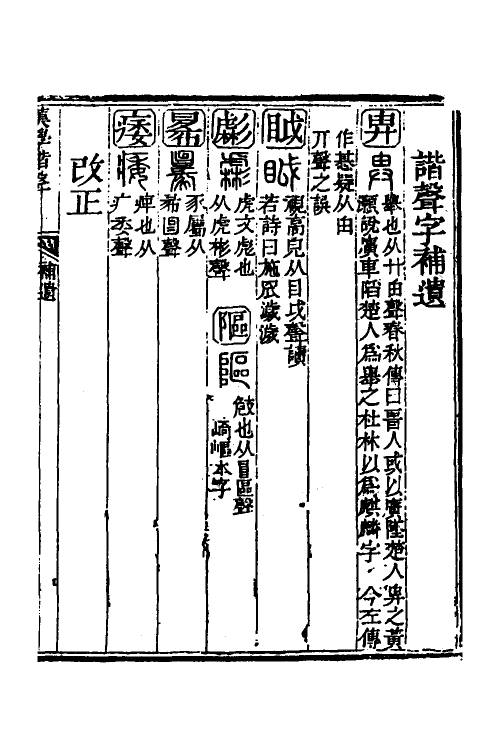 諧聲字補遺
畁 舉也从廾由聲春秋傳曰晉人或以廣墜楚人畁之黃
顥說廣車陷楚人爲舉之杜林以爲麒麟字今左傳
作惎疑从由
丌聲之誤
眓 視高皃从目戉聲讀
若詩曰施罛濊濊
彪 虎文彪也
从虎彬聲
䧢 㩻也从𨸏區聲
崎嶇本字
㣇 豕屬从
㣇㘝聲
痿 痹也从
疒委聲
改正
補遺